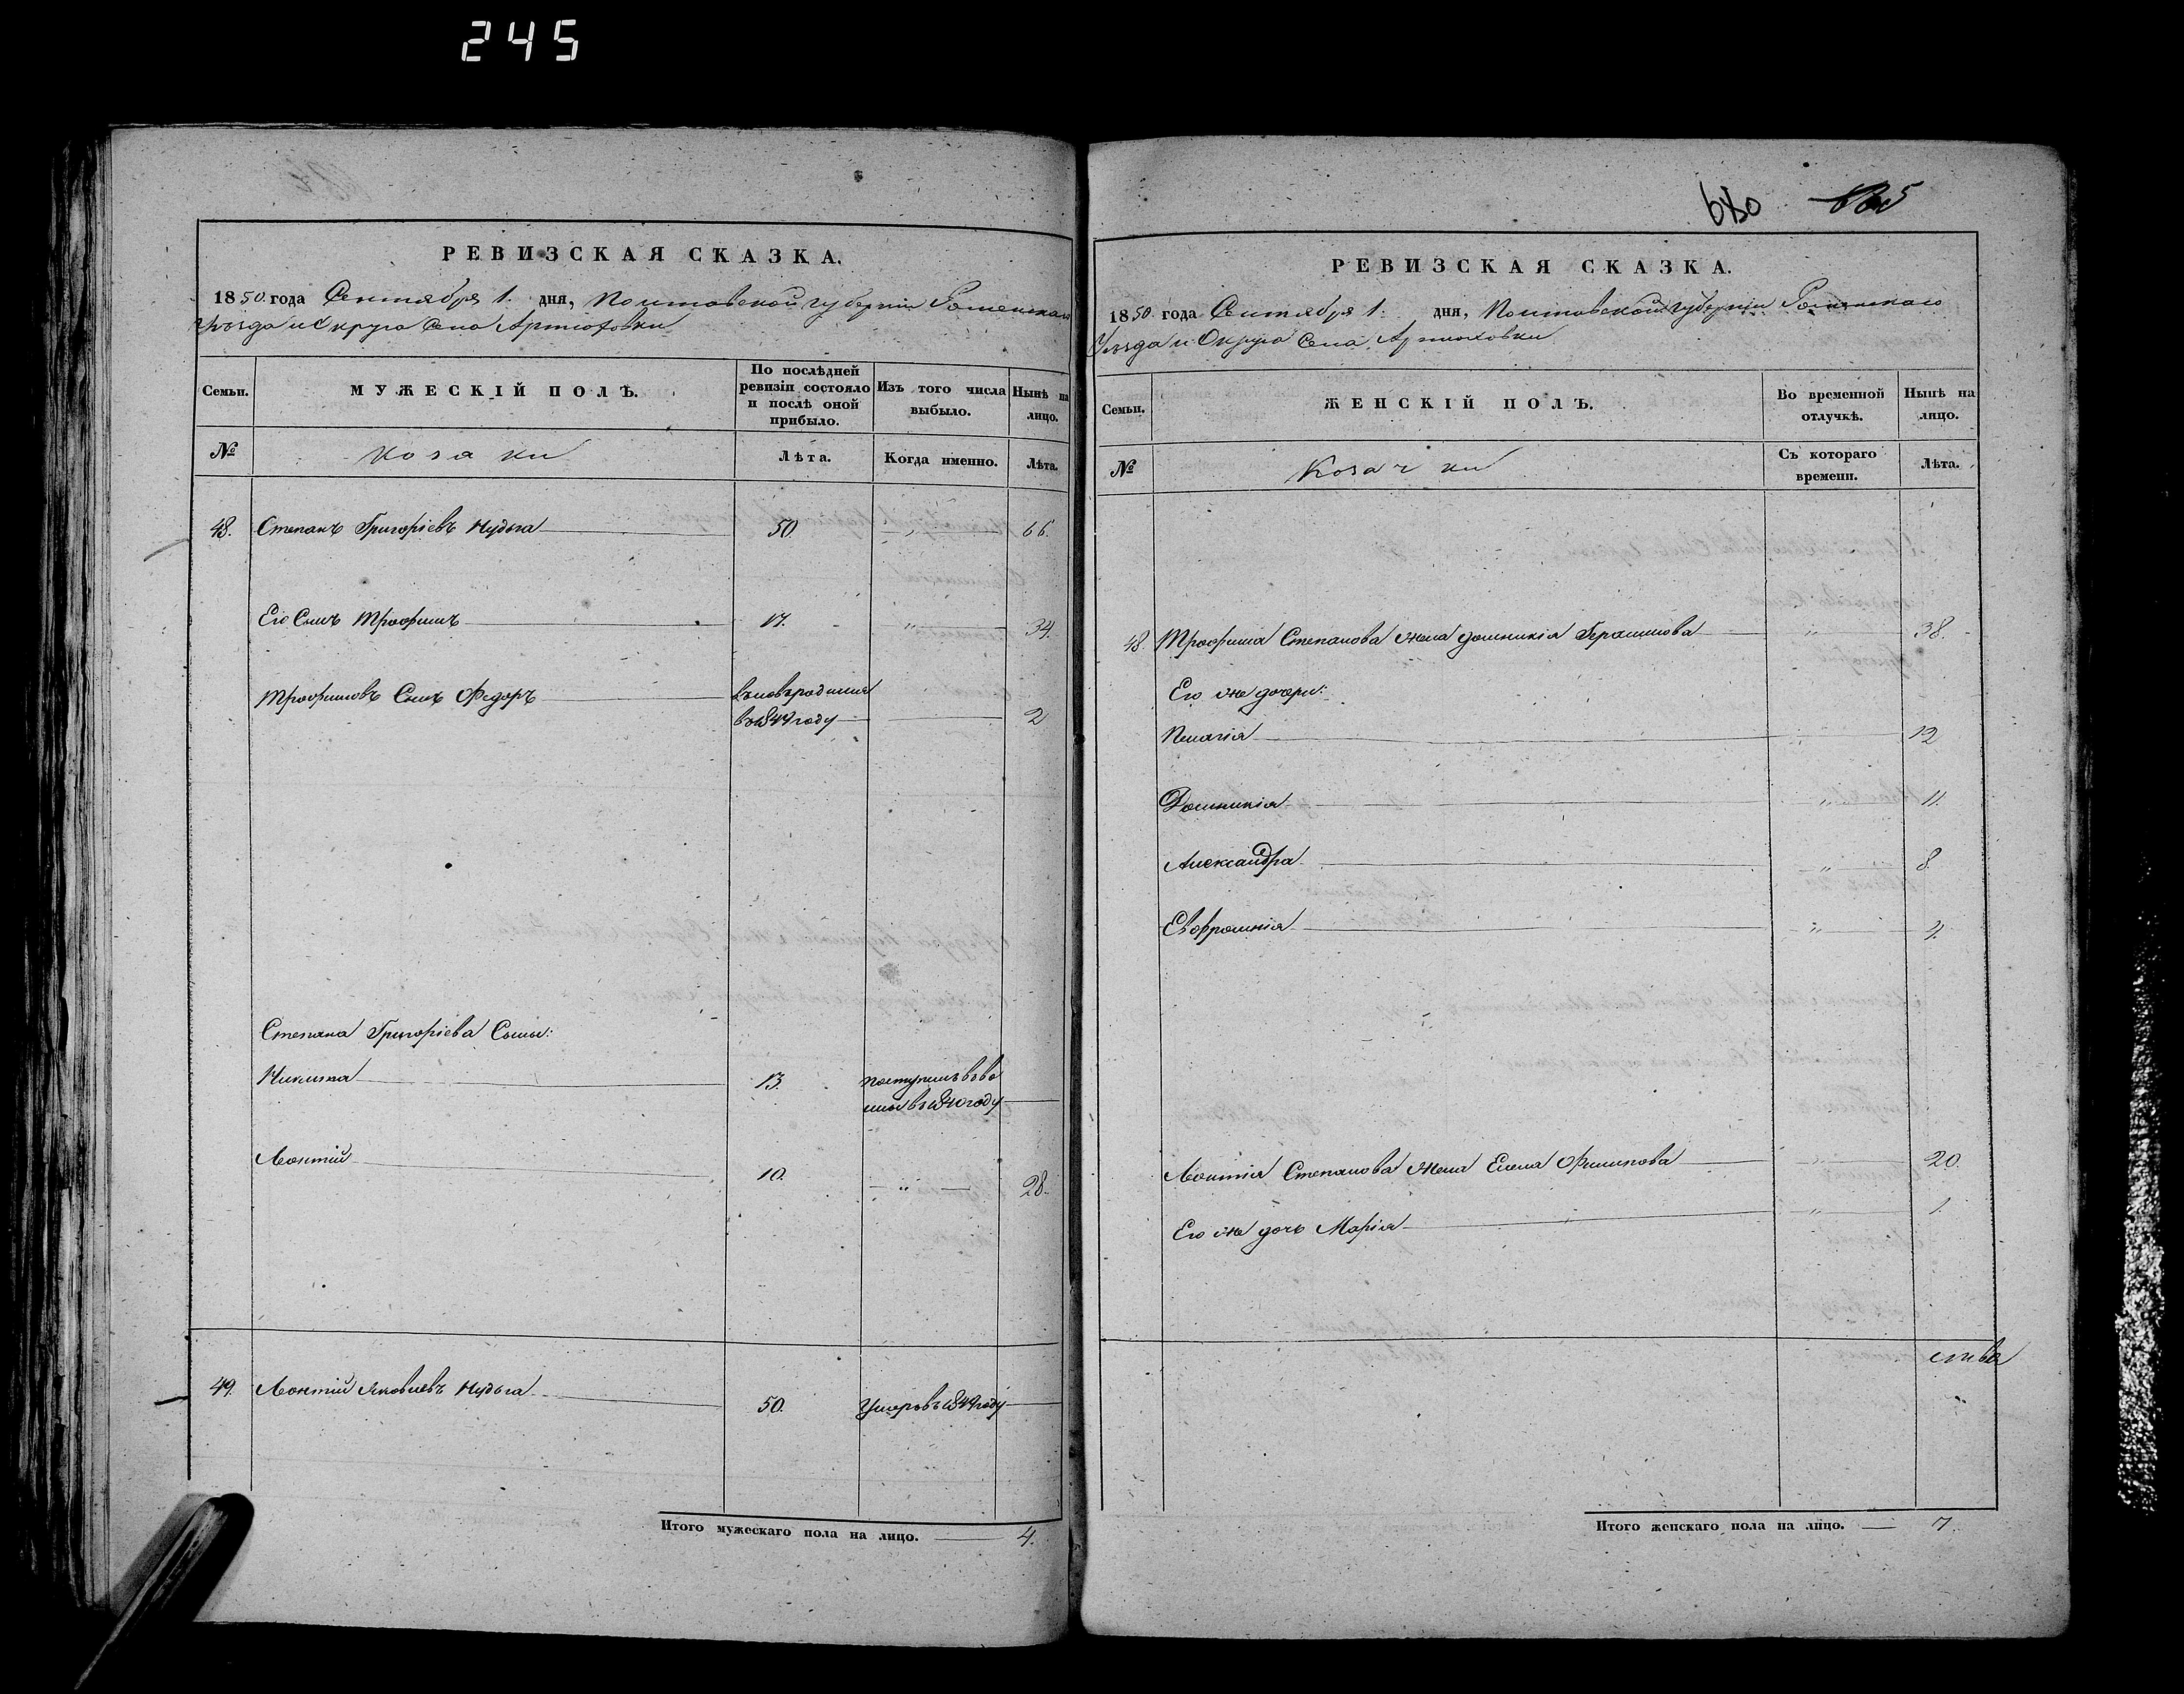 245
РЕВИЗСКАЯ СКАЗКА.
1850 года Сентября 1. дня, Полтавской губерніи Роменскаго
Уѣзда и Округа Села Артюховки
Семьи.
МУЖЕСКІЙ ПОЛЪ.
По послѣдней ревизіи состояло и послѣ оной прибыло.
Изъ того числа выбыло.
Нынѣ на лицо.
№
Козаки
Лѣта.
Когда именно.
Лѣта.
48. Степанъ Григорьевъ Нудьга 50. " 66.
Его Сынъ Трофимъ 17. " 34.
Трофимовъ Сынъ Федоръ
въ 184 году 2
Степана Григоріева Сыны:
Никита 13. поступилъ въ
въ 1840 году
Леонтій 10. " 28.
49. Леонтій Яковлевъ Нудьга 50. Умеръ въ 184 году
Итого мужескаго пола на лицо. 4.
680 665
РЕВИЗСКАЯ СКАЗКА.
1850 года Сентября 1. дня, Полтавской губерніи Роменскаго
Уѣзда и Округа Села Артюховки
Семьи.
ЖЕНСКІЙ ПОЛЪ.
Во временной отлучкѣ.
Нынѣ на лицо.
№
Козачки
Съ котораго времени.
Лѣта.
48. Трофима Степанова жена Домникія Герасимова " 38.
Его же дочери:
Пелагія " 12
Домникія " 11.
Александра " 8.
Евфросинія "
Леонтія Степанова жена Елена Филипова " 20.
Его же дочь Марія " 1.
Итого женскаго пола на лицо. 7.